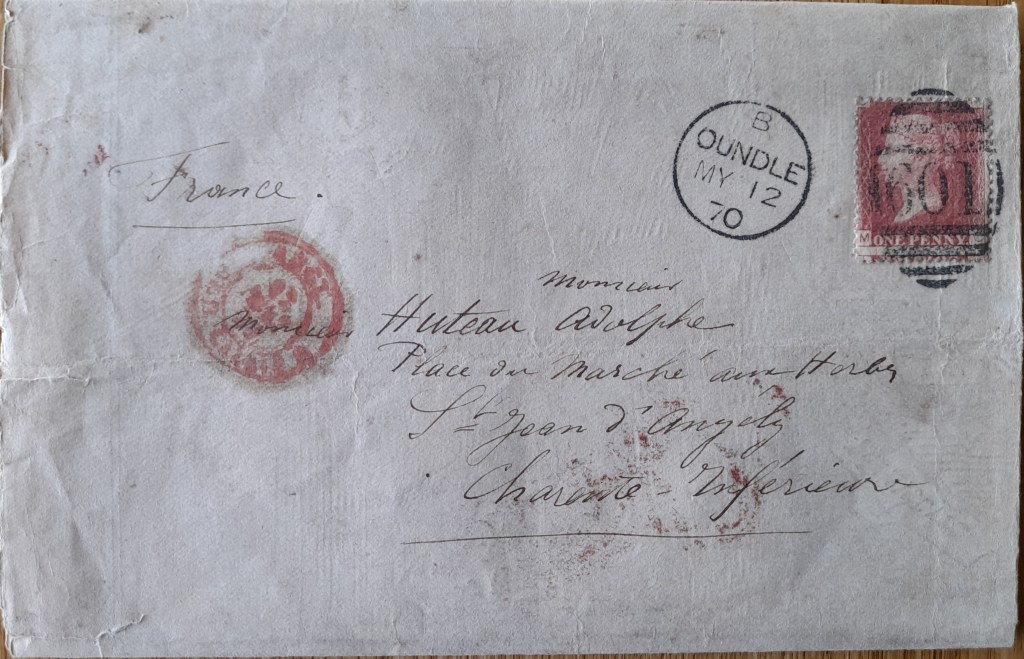 France.
B
OUNDLE
MY 12
70
601
M
ONE PENNY
monsieur
monsieur Huteau Adolphe
Place du Marché aux Herbes
St Jean d'Angély
Charente-Inférieure